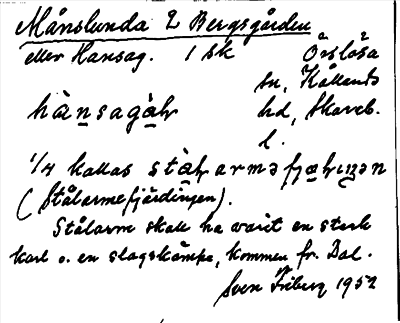 Månslunda 2 Bergsgården
eller Hansag. 1 sk Örslösa
sn, Kållands
hànsagàɽ hd, Skarab.
l.
1/4 kallas stàɽarməfjɑɽɪŋən
(Stålarmefjärdingen).
Stålarm skall ha varit en stark
karl o. en slagskämpe, kommen fr. Dal.
Sven Friberg 1952